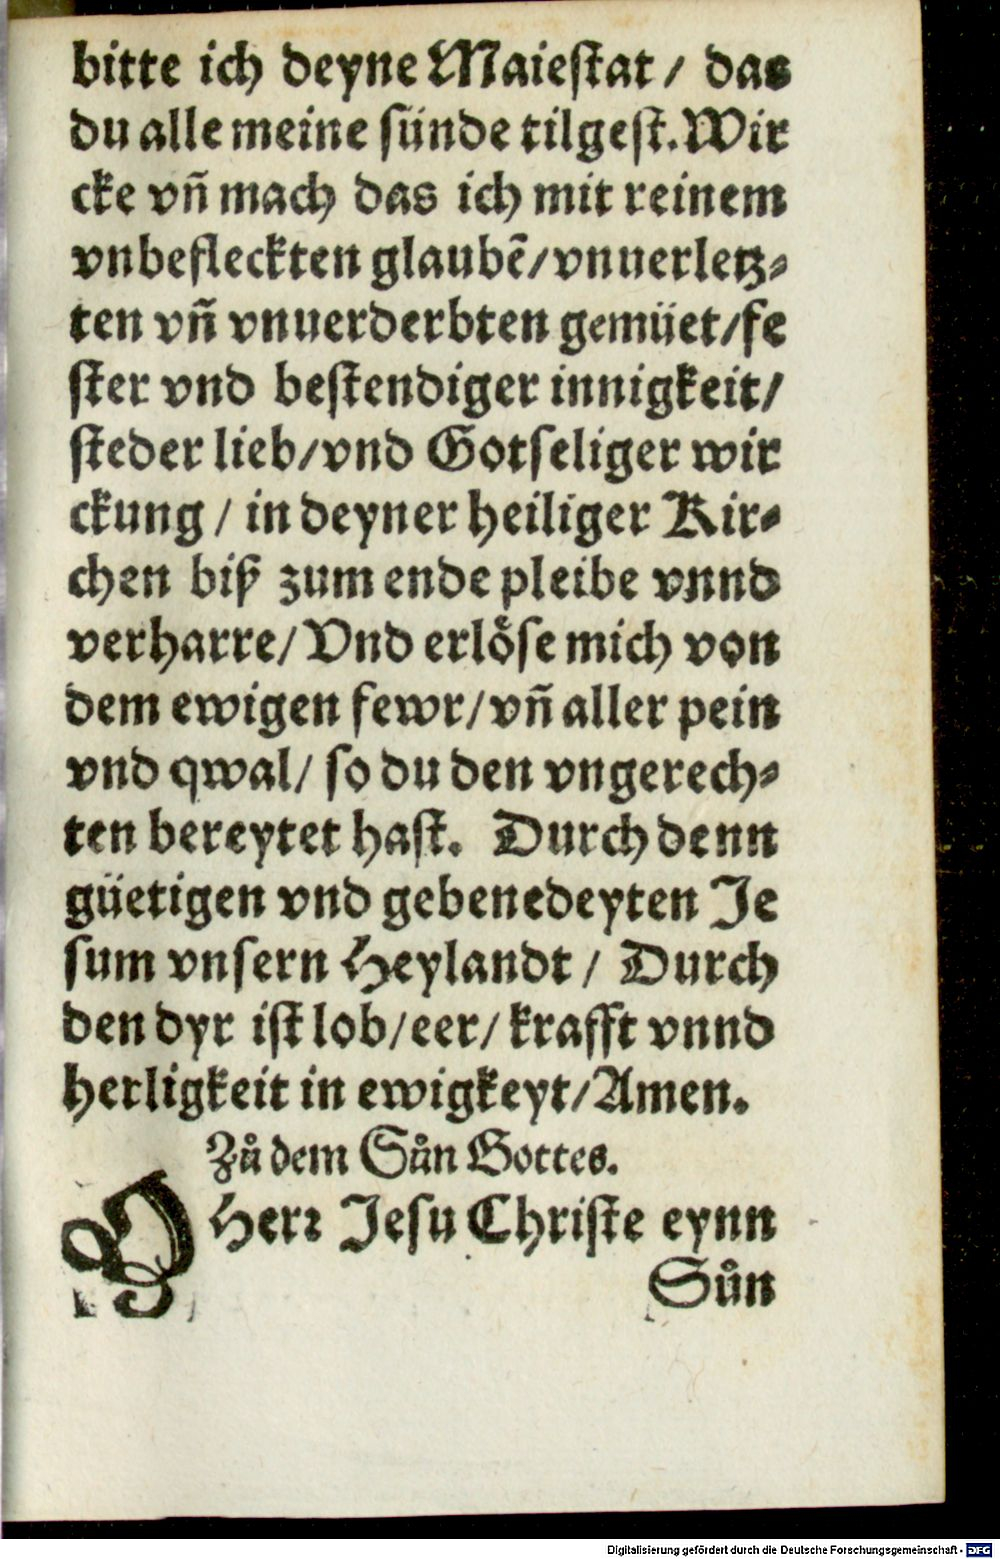 bitte ich deyne Maiestat / das
du alle meine sünde tilgest. Wir
cke vñ mach das ich mit reinem
vnbefleckten glaubẽ/vnuerletz⸗
ten vñ vnuerderbten gemüet/fe
ster vnd bestendiger innigkeit/
steder lieb/vnd Gotseliger wir
ckung / in deyner heiliger Kir⸗
chen biß zum ende pleibe vnnd
verharre/ Vnd erlöse mich von
dem ewigen fewr/vñ aller pein
vnd qwal/ so du den vngerech⸗
ten bereytet hast. Durch denn
güetigen vnd gebenedeyten Je
sum vnsern Heylandt / Durch
den dyr ist lob/eer/ krafft vnnd
herligkeit in ewigkeyt/Amen.
Zů dem Sůn Gottes.
O Herꝛ Jesu Christe eynn
Sůn
Digitalisierung gefördert durch die Deutsche Forschungsgemeinschaft - DFG